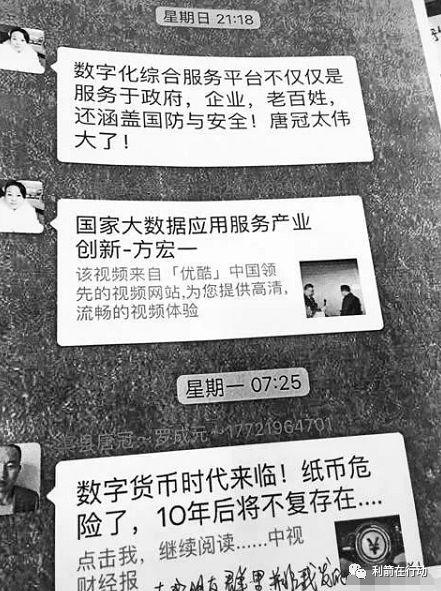 星期日 21:18
数字化综合服务平台不仅仅是
服务于政府，企业，老百姓，
还涵盖国防与安全！唐冠太伟
大了！
国家大数据应用服务产业
创新-方宏一
该视频来自「优酷」中国领
先的视频网站,为您提供高清,
流畅的视频体验
星期一 07:25
唐冠~罗成元~17721964701
数字货币时代来临！纸币危
险了，10年后将不复存在....
点击我，继续阅读......中视
财经报
利箭在行动